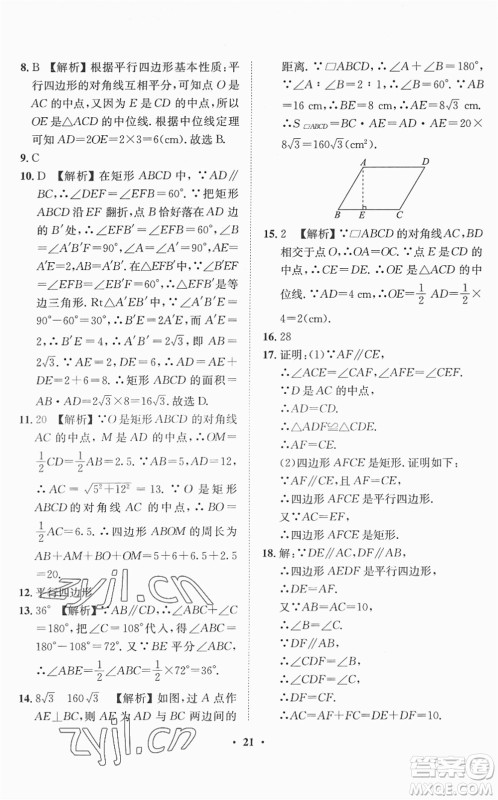 8. B 【解析】根据平行四边形基本性质:平
行四边形的对角线互相平分,可知点 O
是 AC 的中点,又因为 E 是 CD 的中点,所以
OE 是△ACD 的中位线,根据中位线定理
可知 AD=2OE=2×3=6(cm).故选 B.
9. C
10. D 【解析】在矩形 ABCD 中,∵AD∥
BC,∴∠DEF=∠EFB=60°.∵把矩形
ABCD 沿 EF 翻折,点 B 恰好落在 AD 边
的 B′处,∴∠EFB′=∠EFB=60°,∠B=
∠A′B′F=90°,∠A=∠A′=90°,AE=
A′E=2,AB=A′B′.∵∠B′EF=
∠EFB′=60°,∴∠EB′F=60°,∴△B′EF 是等
边三角形.Rt△A′EB′中,∵∠A′B′E=
90°-60°=30°,∴B′E=2A′E,而
A′E=2,∴B′E=4,∴A′B′=2√3,即 AB=
2√3.∵AE=2,DE=6,∴AD=AE+
DE=2+6=8,∴矩形 ABCD 的面积=
AB·AD=2√3×8=16√3.故选 D.
11. 20 【解析】∵O 是矩形 ABCD 的对角线
AC 的中点,M 是 AD 的中点,∴OM=
1/2 CD=1/2 AB=2.5.∵AB=5,AD=12,
∴AC=√(5²+12²)=13.∵O 是矩形
ABCD 的对角线 AC 的中点,∴BO=
1/2 AC=6.5.∴四边形 ABOM 的周长为
AB+AM+BO+OM=5+6+6.5+2.5=
20.
12. 平行四边形
13. 36° 【解析】∵AB∥CD,∴∠ABC+∠C
=180°.把∠C=108°代入,得∠ABC
=180°-108°=72°.∵BE 平分∠ABC,
∴∠ABE=1/2∠ABC=1/2×72°=36°.
14. 8√3 160√3 【解析】如图,过 A 点作
AE⊥BC,则 AE 为 AD 与 BC 两边间的
距离.∵∠A+∠B=180°,∠A∶∠B=
2∶1,∴∠B=60°,∴∠BAE=30°.∵AB
=16,∴BE=8,∴AE=8√3 cm.
∴S▱ABCD=BC·AE=AD·AE=20×
8√3=160√3(cm²).
A D
B E C
15. 2 【解析】∵▱ABCD 的对角线 AC,BD
相交于点 O,∴OA=OC.∵点 E 是 CD 的
中点,∴CE=DE.∴OE 是△ACD 的中
位线.∵AD=4 cm,∴OE=1/2 AD=1/2×
4=2(cm).
16. 28
17. 证明:(1)∵AF∥CE,
∴∠ACE=∠CAF,∠AFE=∠CEF.
∵D 是 AC 的中点,
∴AD=CD.
∴△ADF≌△CDE.
∴AF=CE.
(2)四边形 AFCE 是矩形.证明如下:
∵AF∥CE,AF=CE,
∴四边形 AFCE 是平行四边形.
又∵AC=EF,
∴四边形 AFCE 是矩形.
18. 解:∵DE∥AC,DF∥AB,
∴四边形 AEDF 是平行四边形.
∴DF=AE,AF=DE.
又∵AB=AC=10,
∴∠B=∠C.
∵DF∥AB,
∴∠CDF=∠B.
∴∠CDF=∠C.
∴DF=CF.
• 21 •
zyjl.cn
zyjl.cn
答案圈
MXQE.COM